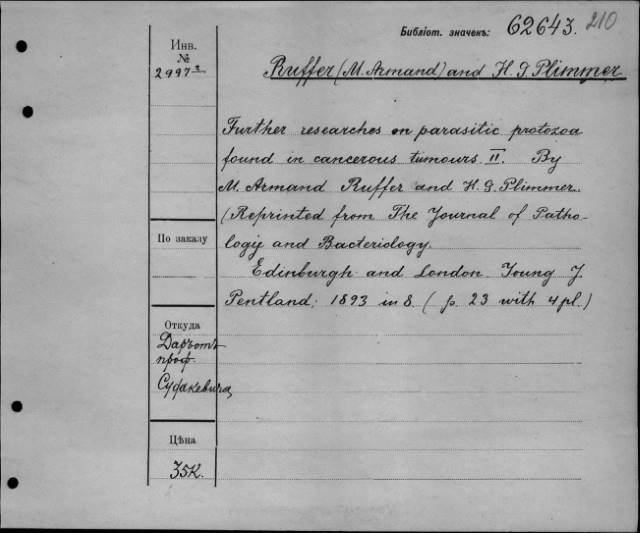 Библіот. значекъ: 62643. 210
Инв.
№
2997²
Ruffer (M. Armand) and H. G. Plimmer
Further researches on parasitic protozoa
found in cancerous tumours II. By
M. Armand Ruffer and H. G. Plimmer.
(Reprinted from The Journal of Patho-
logie and Bacteriology.
Edinburgh and London. Young J.
Pentland; 1893 in 8. (p. 23 with 4 pl.)
По заказу
Откуда
Даръ отъ
проф.
Судакевича
Цѣна
35к.